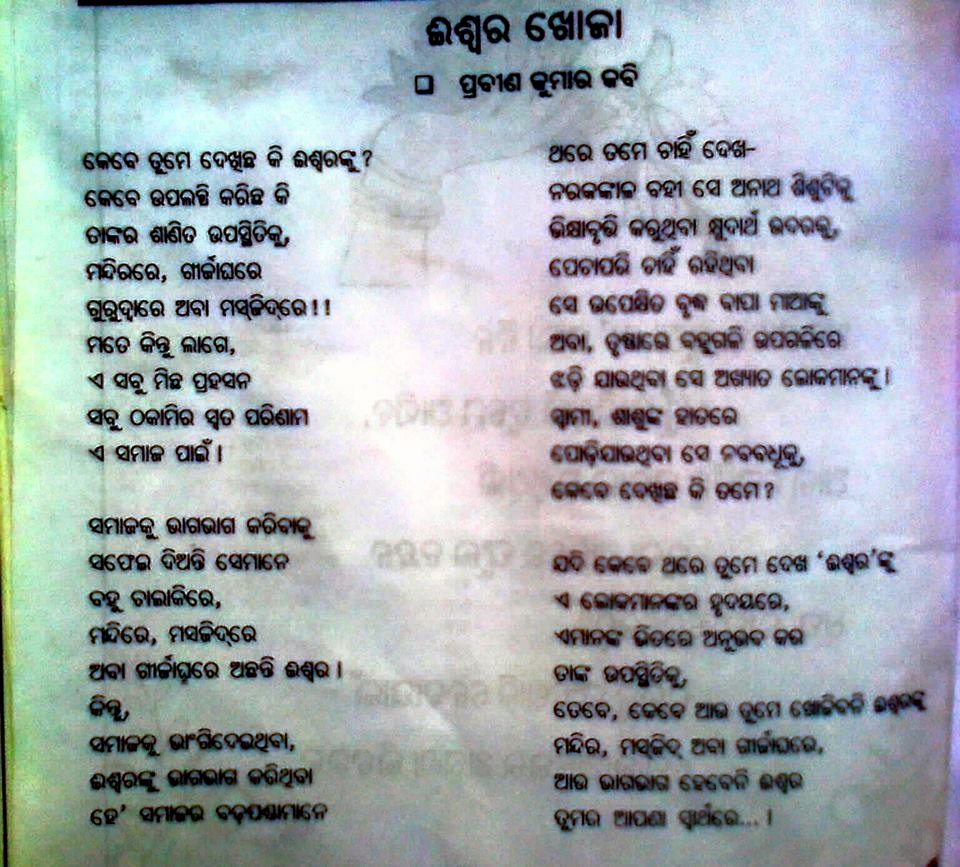 ଈଶ୍ୱର ଖୋଜା
❑ ପ୍ରବୀଣ କୁମାର କବି
କେବେ ତୁମେ ଦେଖିଛ କି ଈଶ୍ୱରଙ୍କୁ ?
କେବେ ଉପଲବ୍ଧି କରିଛ କି
ତାଙ୍କର ଶାଣିତ ଉପସ୍ଥିତିକୁ,
ମନ୍ଦିରରେ, ଗୀର୍ଜାଘରେ
ଗୁରୁଦ୍ୱାରେ ଅବା ମସ୍‌ଜିଦ୍‌ରେ !!
ମତେ କିନ୍ତୁ ଲାଗେ,
ଏ ସବୁ ମିଛ ପ୍ରହସନ
ସବୁ ଠକାମିର ସ୍ୱତ ପରିଣାମ
ଏ ସମାଜ ପାଇଁ ।
ସମାଜକୁ ଭାଗଭାଗ କରିବାକୁ
ସଫେଇ ଦିଅନ୍ତି ସେମାନେ
ବହୁ ଚାଲାକିରେ,
ମନ୍ଦିରେ, ମସଜିଦ୍‌ରେ
ଅବା ଗୀର୍ଜାଘରେ ଅଛନ୍ତି ଈଶ୍ୱର ।
କିନ୍ତୁ,
ସମାଜକୁ ଭାଂଗିଦେଇଥିବା,
ଈଶ୍ୱରଙ୍କୁ ଭାଗଭାଗ କରିଥିବା
ହେ' ସମାଜର ବଡ଼ପଣ୍ଡାମାନେ
ଥରେ ତମେ ଚାହିଁ ଦେଖ-
ନରକଙ୍କାଳ ବହୀ ସେ ଅନାଥ ଶିଶୁଟିକୁ
ଭିକ୍ଷାବୃତ୍ତି କରୁଥିବା କ୍ଷୁଦାର୍ଥ ଉଦରକୁ,
ପେଚାପରି ଚାହିଁ ରହିଥିବା
ସେ ଉପେକ୍ଷିତ ବୃଦ୍ଧ ବାପା ମାଆଙ୍କୁ
ଅବା, ତୃଷାରେ ବହୁଗଳି ଉପଗଳିରେ
ଝଡ଼ି ଯାଉଥିବା ସେ ଅଖ୍ୟାତ ଲୋକମାନଙ୍କୁ ।
ସ୍ୱାମୀ, ଶାଶୁଙ୍କ ହାତରେ
ପୋଡ଼ିଯାଉଥିବା ସେ ନବବଧୂକୁ,
କେବେ ଦେଖିଛ କି ତମେ ?
ଯଦି କେବେ ଥରେ ତୁମେ ଦେଖ 'ଈଶ୍ୱର'ଙ୍କୁ
ଏ ଲୋକମାନଙ୍କର ହୃଦୟରେ,
ଏମାନଙ୍କ ଭିତରେ ଅନୁଭବ କର
ତାଙ୍କ ଉପସ୍ଥିତିକୁ,
ତେବେ, କେବେ ଆଉ ତୁମେ ଖୋଜିବନି ଈଶ୍ୱରଙ୍କୁ
ମନ୍ଦିର, ମସ୍‌ଜିଦ୍ ଅବା ଗୀର୍ଜାଘରେ,
ଆଉ ଭାଗଭାଗ ହେବେନି ଈଶ୍ୱର
ତୁମର ଆପଣା ସ୍ୱାର୍ଥରେ... ।